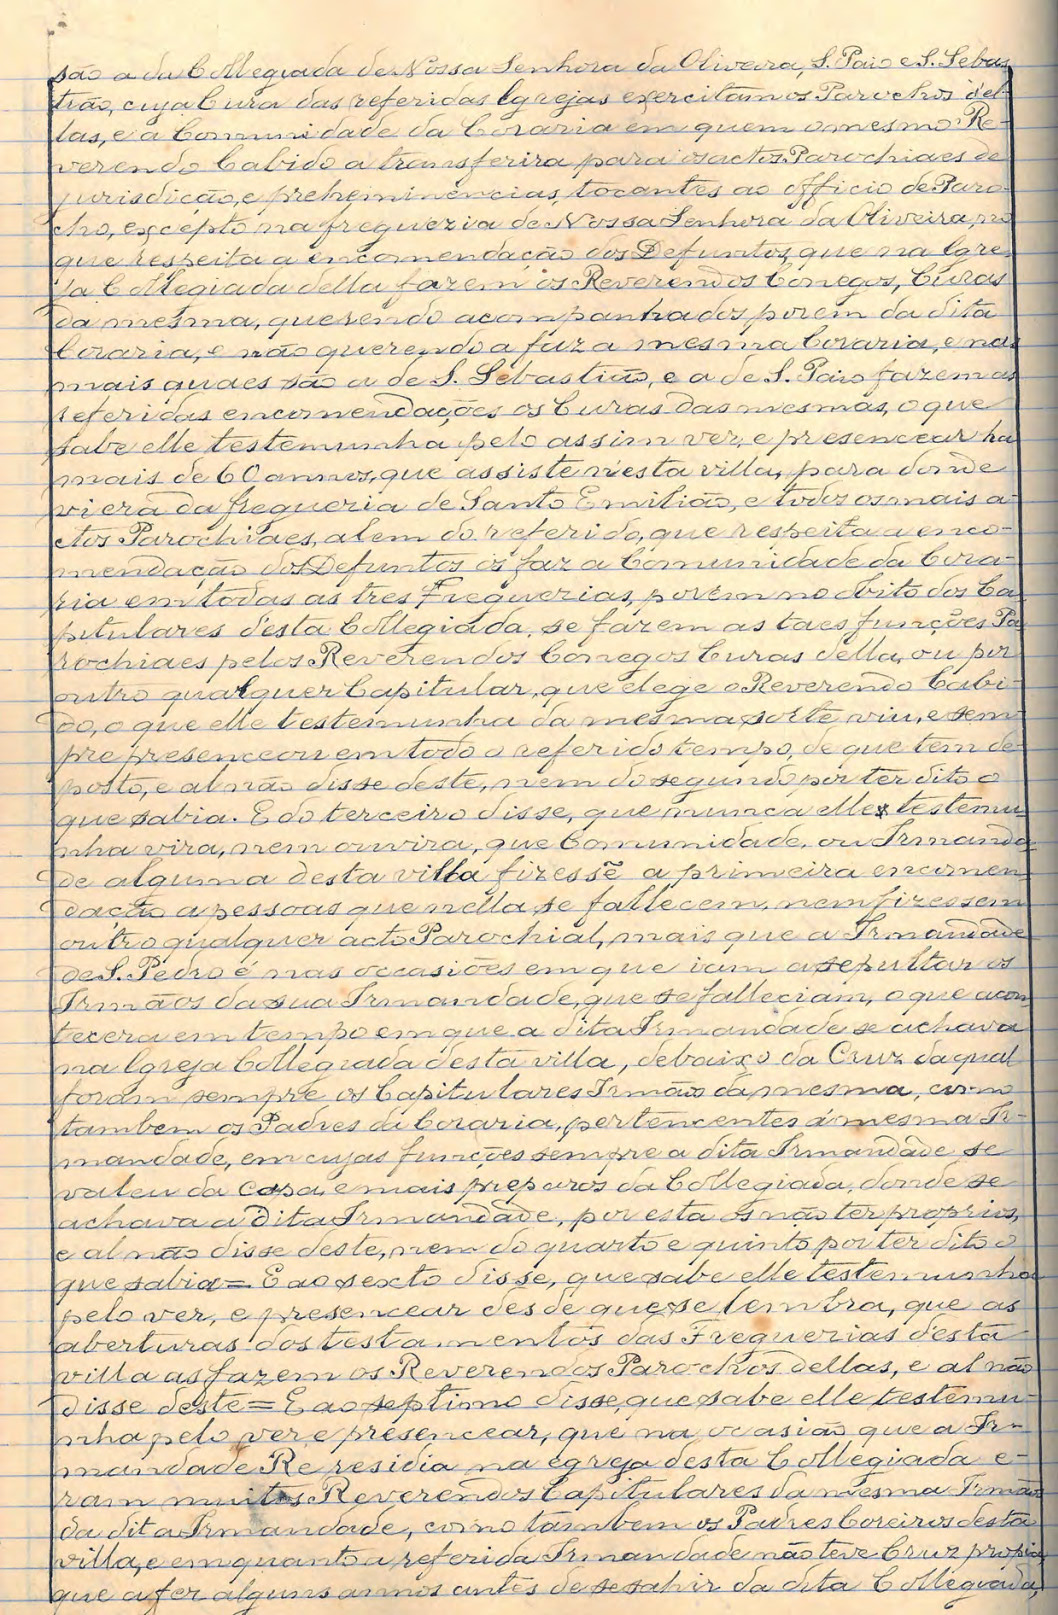 são a da Collegiada de Nossa Senhora da Oliveira, S. Paio e S. Sebas
tião, cuja Cura das referidas Igrejas exercitam os Parochos d'el-
las, e a Communidade da Coraria em quem o mesmo Re-
verendo Cabido a transferira para os actos Parochiaes de
jurisdicção, e preheminencias, tocantes ao officio de Paro-
cho, excepto na freguezia de Nossa Senhora da Oliveira, no
que respeita a encomendação dos Defuntos, que na Igre-
ja Collegiada della fazem os Reverendos Conegos, Curas
da mesma, querendo acompanhados porém da dita
Coraria, e não querendo a faz a mesma Coraria, e nas
mais quaes são a de S. Sebastião, e a de S. Paio fazem as
referidas encomendações os Curas das mesmas, o que
sabe elle testemunha pelo assim ver, e presencear ha
mais de 60 annos, que assiste n'esta villa, para donde
viera da freguezia de Santo Emilião, e todos os mais a-
ctos Parochiaes, alem do referido, que respeita a enco-
mendação dos Defuntos os faz a Comunidade da Cora-
ria em todas as tres Freguezias, porém no obito dos Ca
pitulares desta Collegiada, se fazem as taes funcções Pa
rochiaes pelos Reverendos Conegos Curas della, ou por
outro qualquer Capitular, que elege o Reverendo Cabi-
do, o que elle testemunha da mesma sorte viu, e sem
pre presenceou em todo o referido tempo, de que tem de-
posto, e al não disse deste, nem do segundo por ter dito o
que sabia. E do terceiro disse, que nunca elle testemu
nha vira, nem ouvira, que Comunidade, ou Irmanda-
de alguma desta villa fizessẽ a primeira encomen
dação a pessoas que nella se fallecem, nem fizessem
outro qualquer acto Parochial, mais que a Irmandade
de S. Pedro é nas occasiões em que iam a sepultar os
Irmãos da sua Irmandade, que se falleciam, o que acon
tecera em tempo em que a dita Irmandade se achava
na Igreja Collegiada desta villa, debaixo da Cruz da qual
foram sempre os Capitulares Irmãos da mesma, como
tambem os Padres da Coraria, pertencentes á mesma Ir-
mandade, em cujas funcções sempre a dita Irmandade se
valeu da capa, e mais preparos da Collegiada, donde se
achava a dita Irmandade, por esta os não ter proprios,
e al não disse deste, nem do quarto e quinto por ter dito o
que sabia = E ao sexto disse, que sabe elle testemunha
pelo ver, e presencear desde que se lembra, que as
aberturas dos testamentos das Freguezias desta
villa as fazem os Reverendos Parochos dellas, e al não
disse deste = E ao septimo disse, que sabe elle testemu-
nha pelo ver, e presencear, que na ocasião que a Ir-
mandade Re residia na egreja desta Collegiada e-
ram muitos Reverendos Capitulares da mesma Irmãos
da dita Irmandade, como tambem os Padres Coreiros desta
villa, e em quanto a referida Irmandade não teve Cruz propria
que a fez alguns annos antes de se sahir da dita Collegiada,